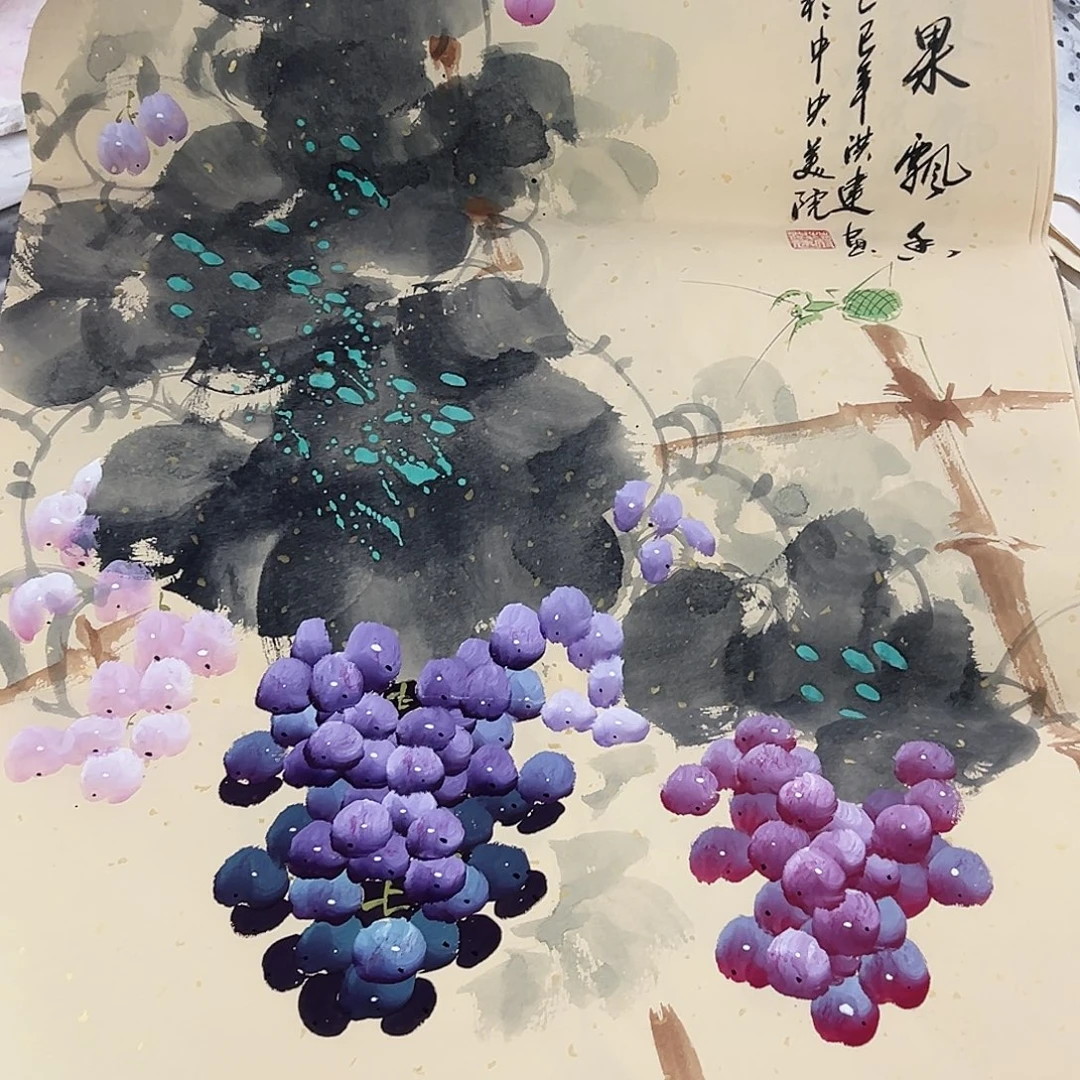 果飘香
乙巳年洪建画
於中央美院